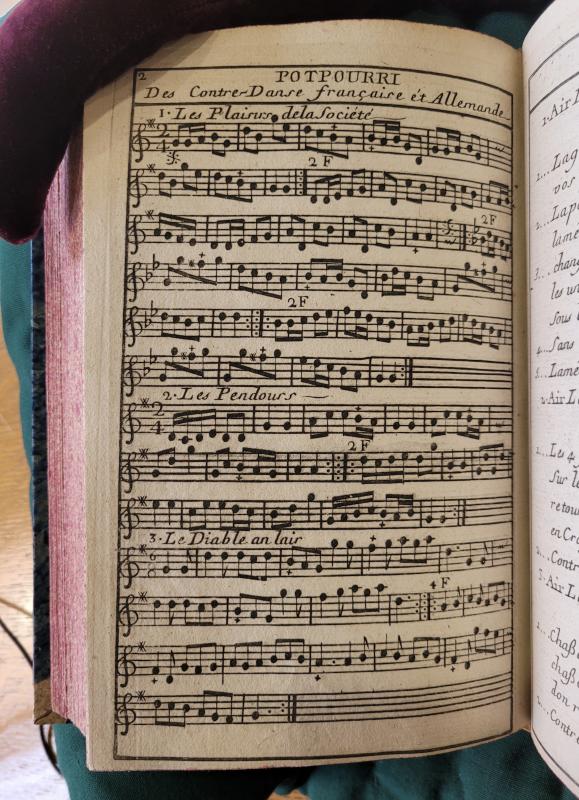 2
POTPOURRI
Des Contre-Danse française ét Allemande
1. Les Plaisirs de la Société
2 4
2 F
2 F
2 F
2. Les Pendours
2 4
2 F
3. Le Diable an lair
6 8
4 F
1. Air
1... Lag
vos
2... Lapo
lame
3... chang
les un
Sous
4... Sans
5... Lamé
2 Air L
1... Les 4
Sur le
retou
en Cro
2... Contr
3. Air L
1... Chaß
chaß
don r
2... Contre